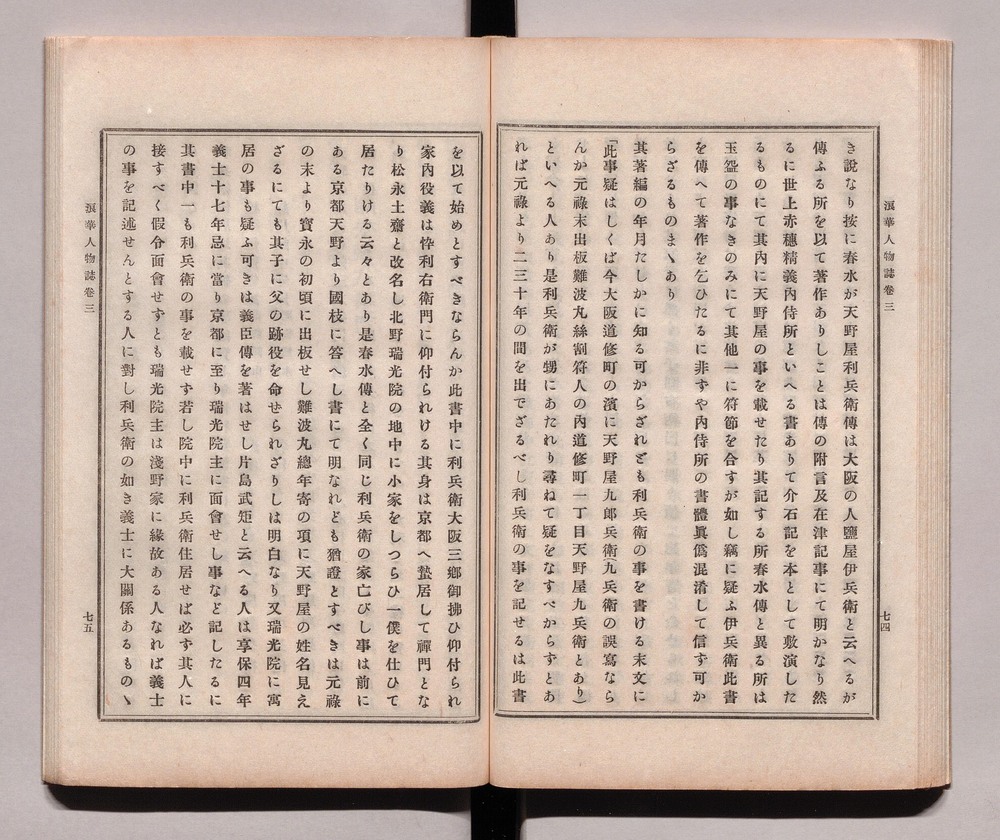 浪華人物誌卷三
き說なり按に春水が天野屋利兵衛傳は大阪の人鹽屋伊兵衛と云へるが
傳ふる所を以て著作ありしことは傳の附言及在津記事にて明かなり然
るに世上赤穗精義內侍所といへる書ありて介石記を本として敷演した
るものにて其內に天野屋の事を載せたり其記する所春水傳と異る所は
玉盌の事なきのみにて其他一に符節を合すが如し竊に疑ふ伊兵衛此書
を傳へて著作を乞ひたるに非ずや內侍所の書體眞僞混淆して信ず可か
らざるものまゝあり
其著編の年月たしかに知る可からざれども利兵衛の事を書ける末文に
「此事疑はしくば今大阪道修町の濱に天野屋九郞兵衛(九兵衛の誤寫なら
んか元祿末出板難波丸絲割符人の內道修町一丁目天野屋九兵衛とあり)
といへる人あり是利兵衛が甥にあたれり尋ねて疑をなすべからずとあ
れば元祿より二三十年の間を出でざるべし利兵衛の事を記せるは此書
七四
を以て始めとすべきならんか此書中に利兵衛大阪三鄕御拂ひ仰付られ
家內役義は悴利右衛門に仰付られける其身は京都へ蟄居して禪門とな
り松永土齋と改名し北野瑞光院の地中に小家をしつらひ一僕を仕ひて
居たりける云々とあり是春水傳と全く同じ利兵衛の家亡びし事は前に
ある京都天野より國枝に答へし書にて明なれども猶證とすべきは元祿
の末より寶永の初頃に出板せし難波丸總年寄の項に天野屋の姓名見え
ざるにても其子に父の跡役を命せられざりしは明白なり又瑞光院に寓
居の事も疑ふ可きは義臣傳を著はせし片島武矩と云へる人は享保四年
義士十七年忌に當り京都に至り瑞光院主に面會せし事など記したるに
其書中一も利兵衛の事を載せず若し院中に利兵衛住居せば必ず其人に
接すべく假令面會せずとも瑞光院主は淺野家に緣故ある人なれば義士
の事を記述せんとする人に對し利兵衛の如き義士に大關係あるものゝ
浪華人物誌卷三
七五